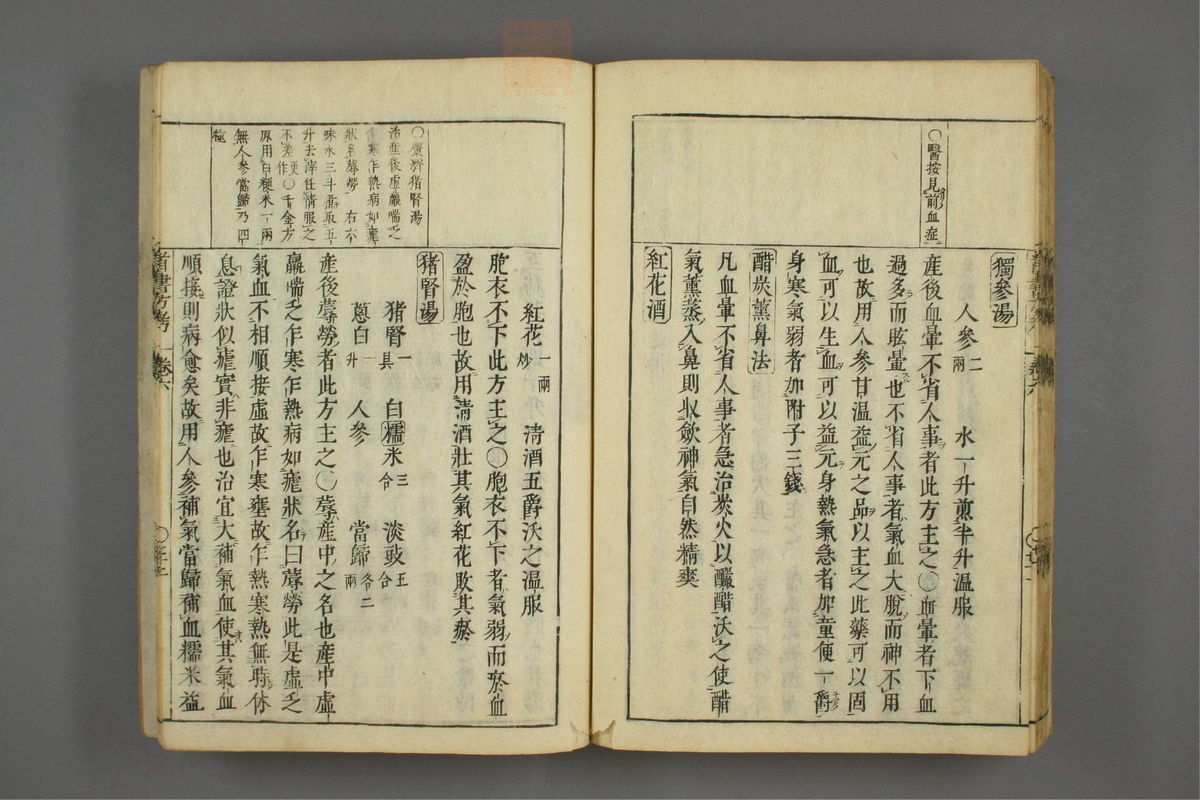 ○醫按見前血症
獨參湯
人參二兩 水一升煎半升溫服
產後血暈不省人事者此方主之○血暈者下血
過多而眩暈也不省人事者氣血大脫而神不用
也故用人參甘溫益元之品以主之此藥可以固
血可以生血可以益元身熱氣急者加童便一爵
身寒氣弱者加附子三錢
醋炭薰鼻法
凡血暈不省人事者急治炭火以釅醋沃之使醋
氣薰蒸入鼻則收斂神氣自然精爽
紅花酒
○廣濟猪腎湯
治產後虛羸喘乏
乍寒乍熱病如瘧
狀名蓐勞 右六
味水三斗煮取五
升去滓任情服之
不差更作○千金方
原用白粳米一兩
無人參當歸乃四
紅花一兩炒 清酒五爵沃之溫服
胞衣不下此方主之○胞衣不下者氣弱而瘀血
盈於胞也故用清酒壯其氣紅花敗其瘀
猪腎湯
猪腎一具 白糯米三合 淡豉五合
蔥白一升 人參 當歸各二兩
產後蓐勞者此方主之○蓐產中之名也產中虛
羸喘乏乍寒乍熱病如瘧狀名曰蓐勞此是虛乏
氣血不相順接虛故乍寒壅故乍熱寒熱無時休
息證狀似瘧實非瘧也治宜大補氣血使其氣血
順接則病愈矣故用人參補氣當歸補血糯米益